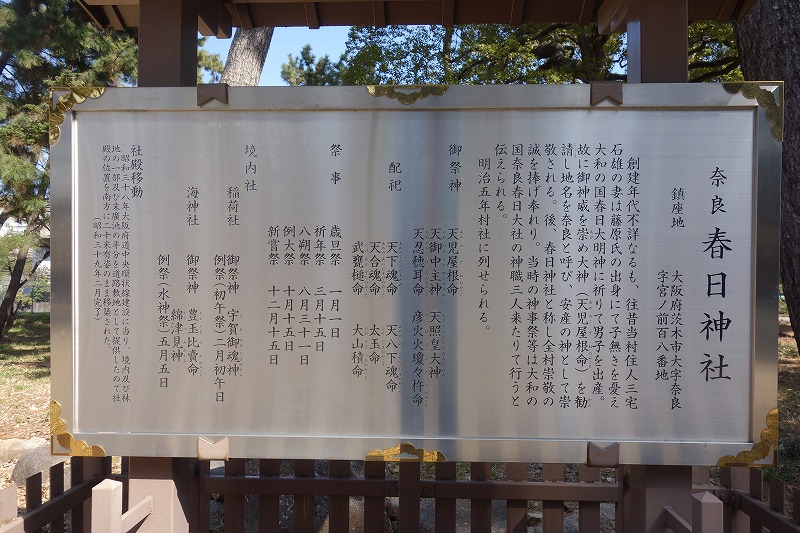 奈良春日神社
鎮座地 大阪府茨木市大字奈良
字宮ノ前百八番地
創建年代不詳なるも、往昔当村住人三宅
石雄の妻は藤原氏の出身にて子無きを憂え
大和の国春日大明神に祈りて男子を出産。
故に御神威を崇め大神(天児屋根命)を勧
請し地名を奈良と呼び、安産の神として崇
敬される。後、春日神社と称し全村崇敬の
誠を捧げ奉れり。当時の神事祭等は大和の
国奈良春日大社の神職三人来たりて行うと
伝えられる。
明治五年村社に列せられる。
御祭神 天児屋根命
天御中主神 天照皇大神
天忍穂耳命 彦火火瓊々杵命
配祀 天下魂命 天八下魂命
天合魂命 太玉命
武甕槌命 大山積命
祭事 歳旦祭 一月一日
祈年祭 三月十五日
八朔祭 八月三十一日
例大祭 十月十五日
新嘗祭 十二月十五日
境内社
稲荷社 御祭神 宇賀御魂神
例祭(初午祭)二月初午日
海神社 御祭神 豊玉比賣命
綿津見神
例祭(水神祭)五月五日
社殿移動
昭和三十八年大阪府道中央環状線建設に当り、境内及び林
地の一部及び末廣池の半分を道路敷地として提供したので社
殿の位置を南方に二十米有姿のまま移築された。
(昭和三十九年二月完了)